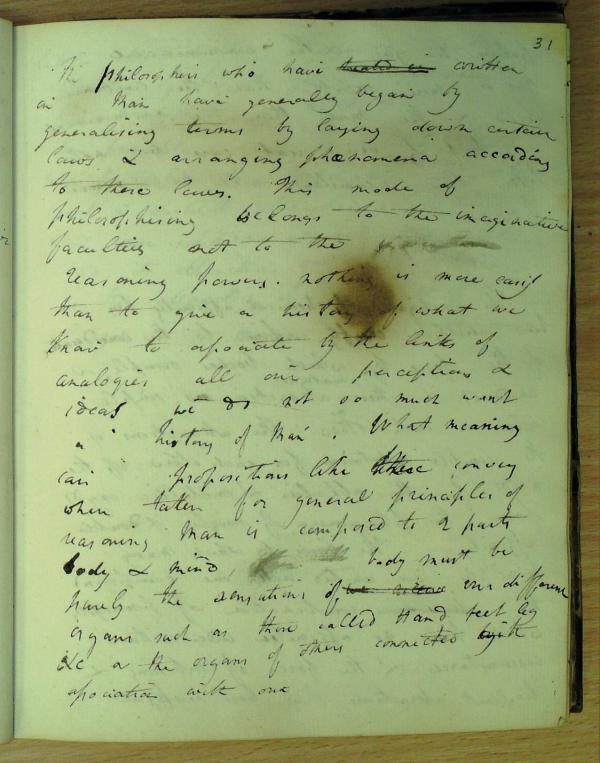 31
The philosophers who have treated in written
on Man have generally began by
generalising terms by laying down certain
laws & arranging phœnomena according
to these laws. This mode of
philosophising belongs to the imaginative
faculties not to the
reasoning powers. nothing is more easy
than to give a history of what we
know to associate by the links of
analogies all our perceptions &
ideas we do not so much want
a history of Man. What meaning
can propositions like these convey
when taken for general principles of
reasoning Man is composed to 2 parts
body & mind, body must be
purely the sensations of we receive our different
organs such as those called Hand feet leg
&c or the organs of others connected with
association with our